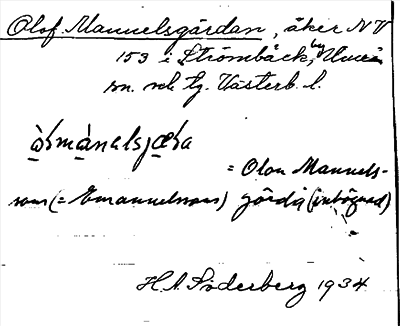 Olof Manuelsgärdan, åker NV
153 i Strömbäck, by, Umeå
sn. och tg. Västerb. l.
= Olou Manuels-
son (= Emanuelssons) gärda (inhägnad)
H. A. Söderberg 1934